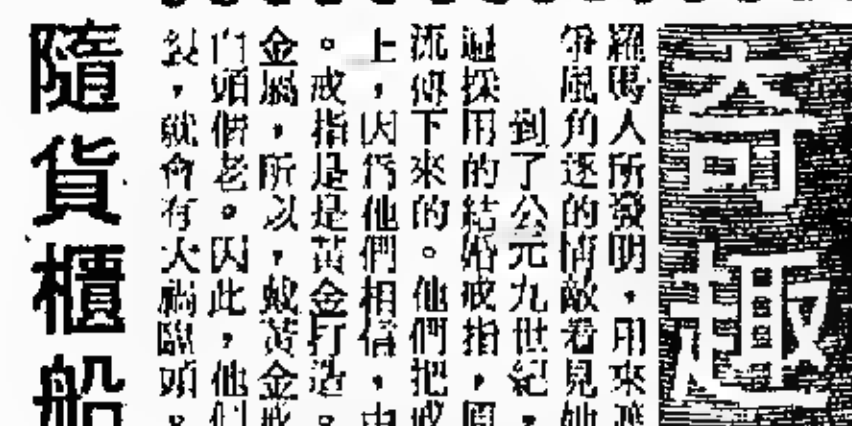 奇趣
羅馬人所發明，用來
爭風角逐的情敵看見她
到了公元九世紀，
採用的結婚戒指，
流傳下來的。他們把戒
上，因爲他們相信，由
。戒指是是黃金打造。
金屬，所以，戴黃金戒
頭個老。因此，他們
裂，就會有大禍臨頭。
隨貨櫃船